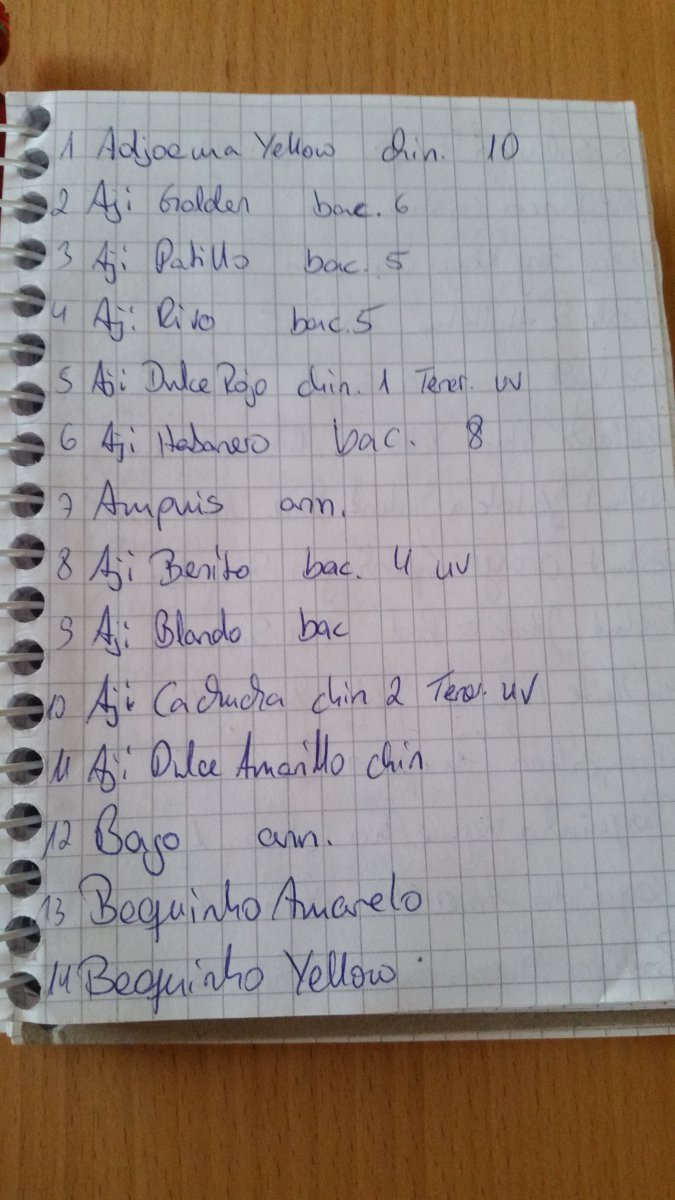 1 Adjoema Yellow chin. 10
2 Aji Golden bac. 6
3 Aji Patillo bac. 5
4 Aji Rivo bac. 5
5 Aji Dulce Rojo chin. 1 Tener. uv
6 Aji Habanero bac. 8
7 Ampuis ann.
8 Aji Benito bac. 4 uv
9 Aji Blando bac
10 Aji Cachucha chin 2 Tener. uv
11 Aji Dulce Amarillo chin
12 Bajo ann.
13 Bequinho Amarelo
14 Bequinho Yellow